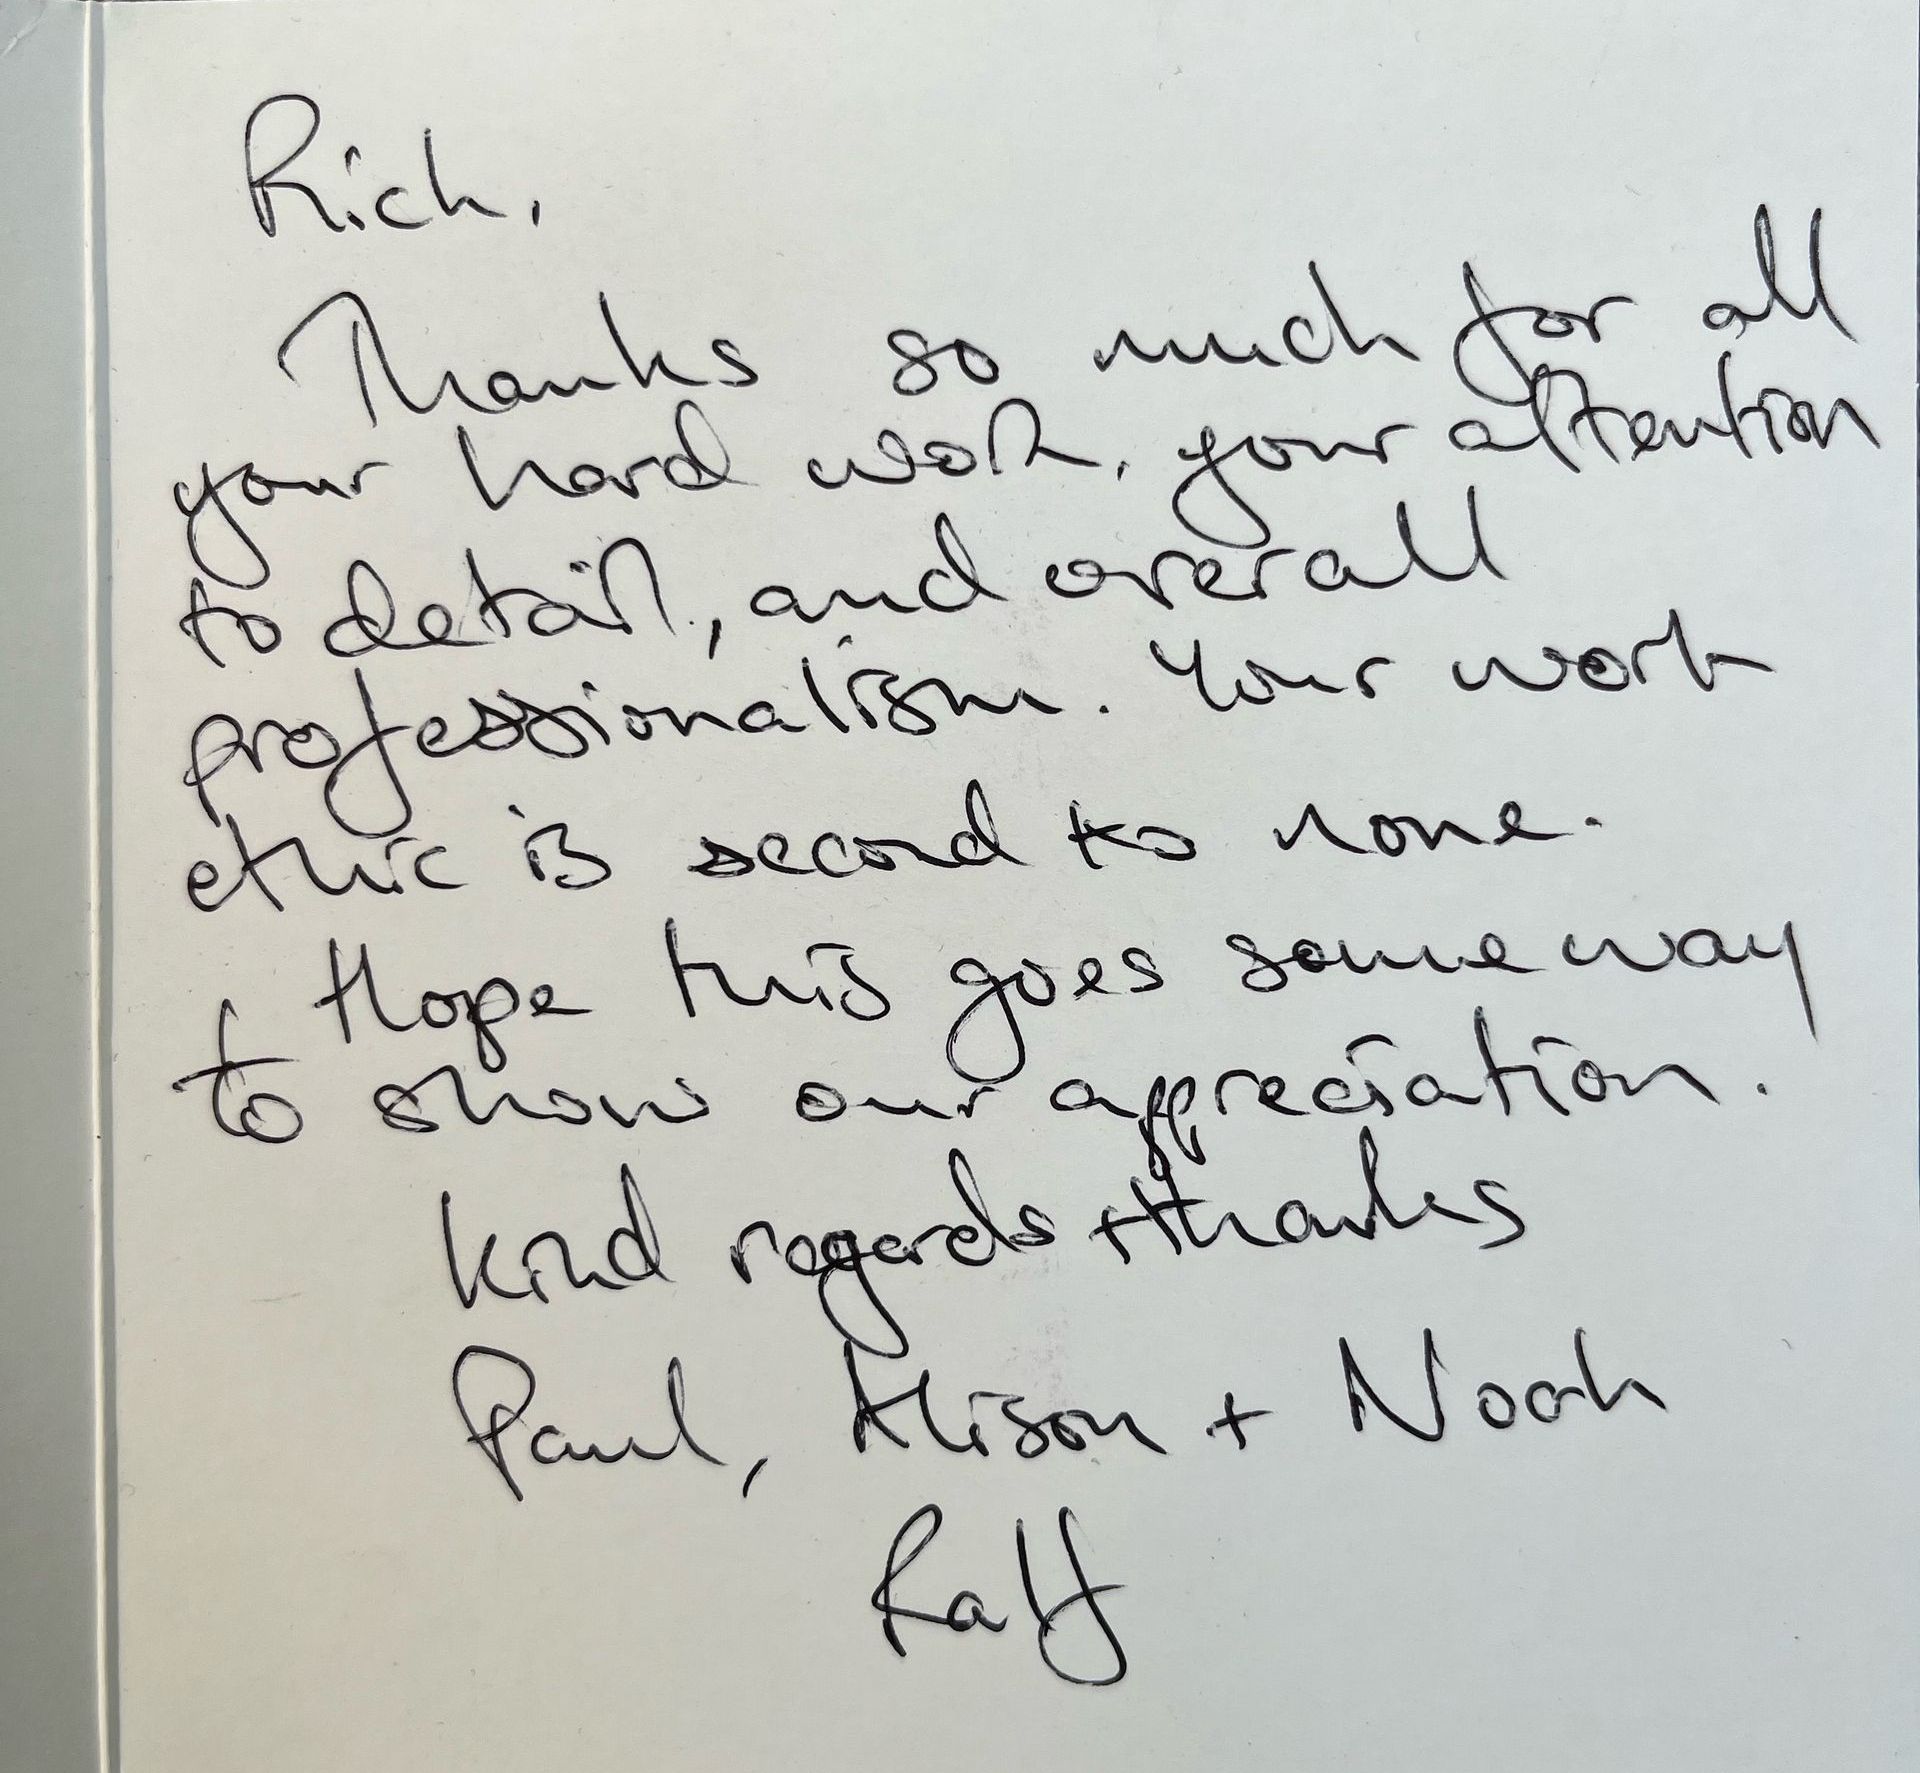 Rich,
Thanks so much for all
your hard work, your attention
to detail, and overall
professionalism. Your work
ethic is second to none.
Hope this goes some way
to show our appreciation.
Kind regards + thanks
Paul, Alison + Noah
Ralf